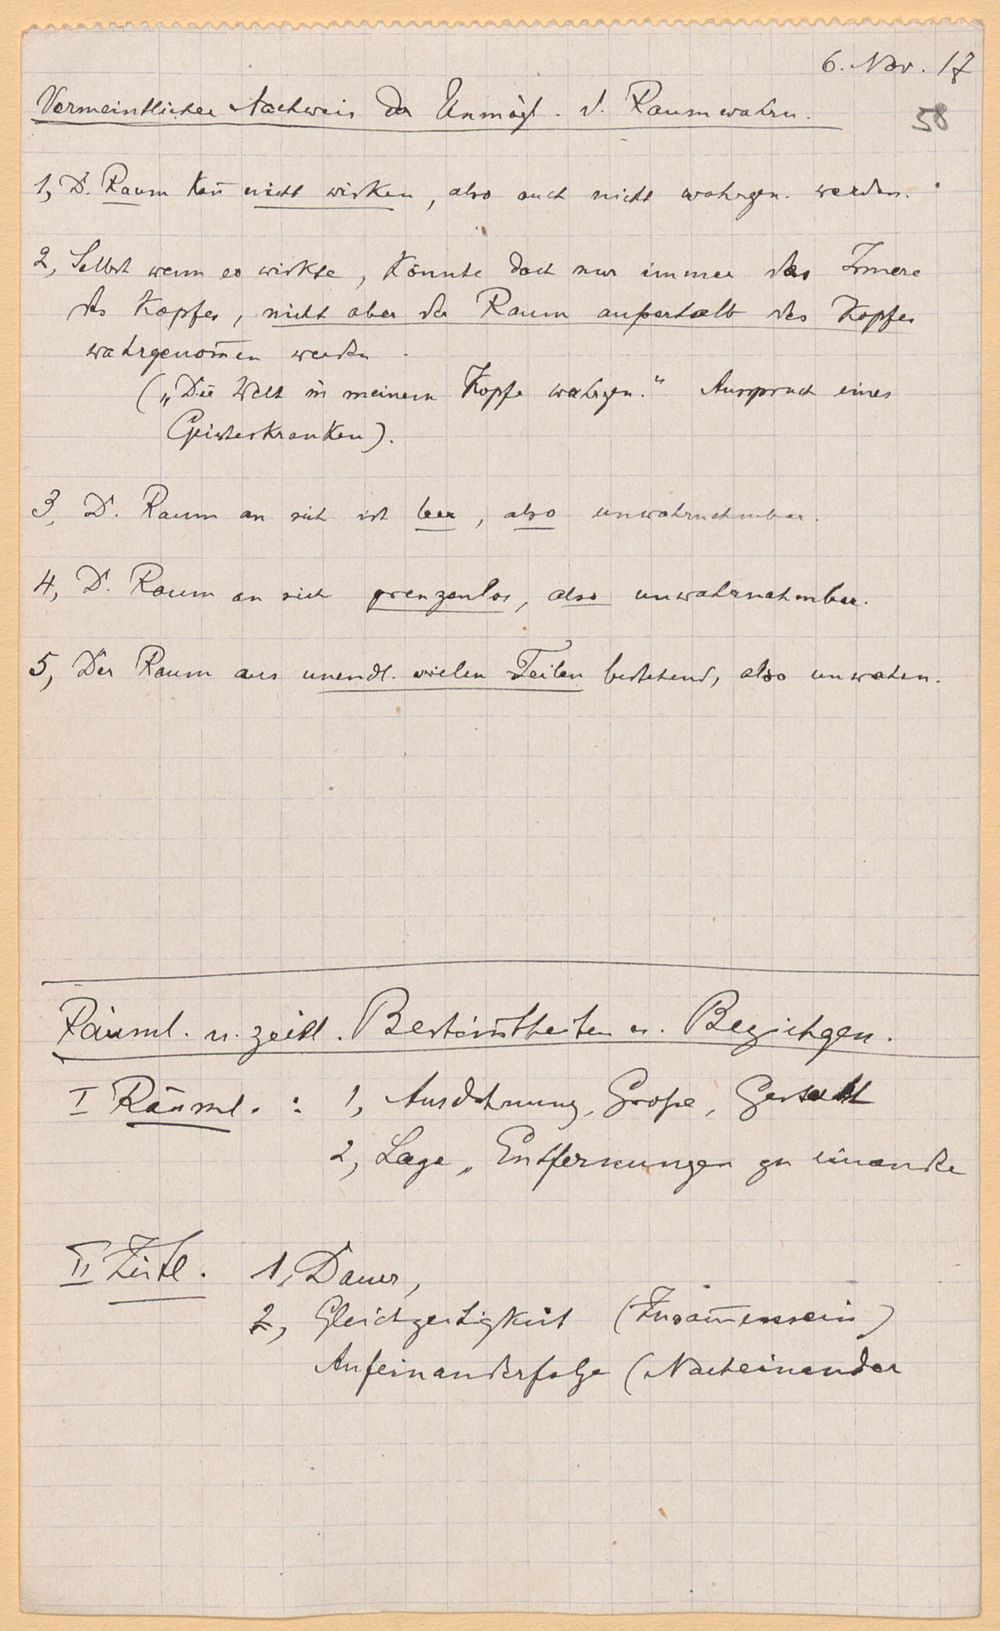 6. Nov. 17
Vermeintlicher Nachweis der Unmögl. d. Raumwahrn.
58
1, D. Raum kañ nicht wirken, also auch nicht wahrgen. werden.
2, Selbst wenn er wirkte, könnte doch nur immer das Innere
des Kopfes, nicht aber der Raum außerhalb des Kopfes
wahrgenom̄en werden.
(„Die Welt in meinem Kopfe wahrgen.“ Ausspruch eines
Geisteskranken).
3, D. Raum an sich ist leer, also unwahrnehmbar.
4, D. Raum an sich grenzenlos, also unwahrnehmbar.
5, Der Raum aus unendl. vielen Teilen bestehend, also unwahrn.
Räuml. u. zeitl. Bestim̄theiten u. Beziehgen.
I Räuml. : 1, Ausdehnung, Große, Gestalt
2, Lage, Entfernungen zu einander
II Zeitl. 1, Dauer,
2, Gleichzeitigkeit (Zusam̄ensein)
Aufeinanderfolge (Nacheinander